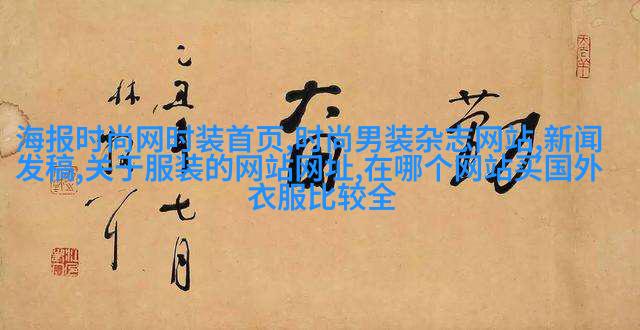 海报时尚网时装首页,时尚男装杂志网站,新闻
发稿,关于服装的网站网址,在哪个网站买国外
衣服比较全
勤奋
乙丑年七月
林散耳